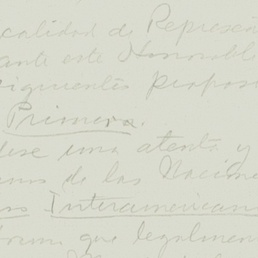 calidad de Represen
ante este Honorable
siguientes propos
Primera.
dese una atenta y
de las Nacion
Interamerican
que legalmen